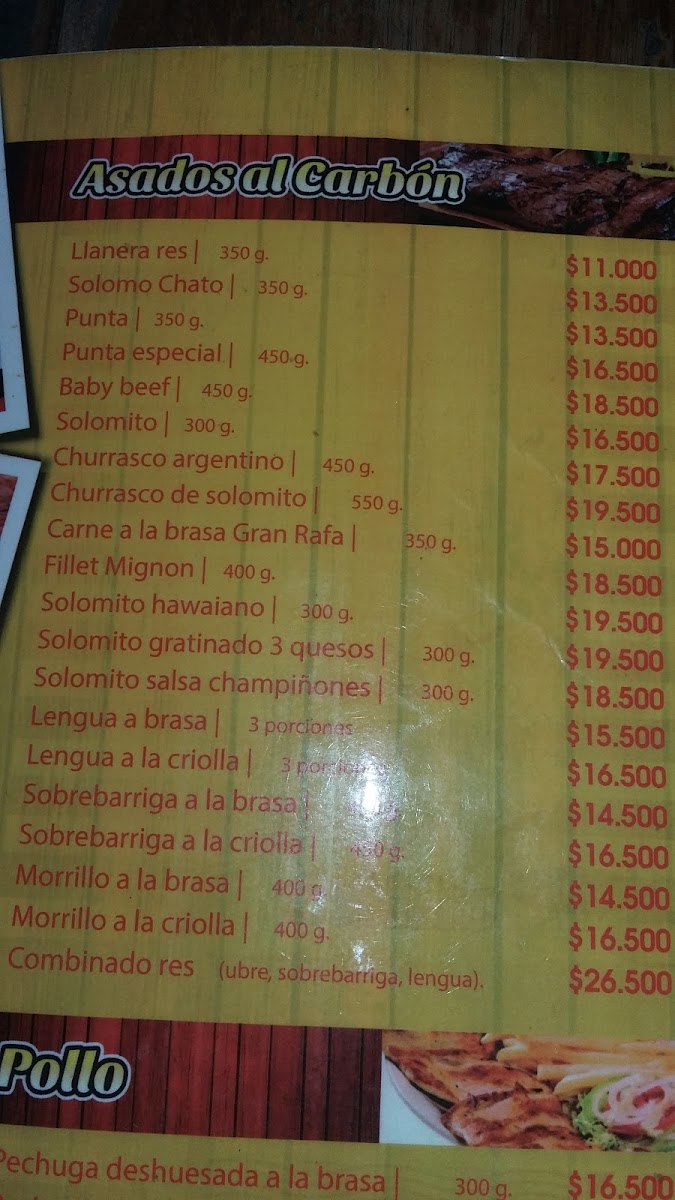 Asados al Carbón
Llanera res | 350 g. $11.000
Solomo Chato | 350 g. $13.500
Punta | 350 g. $13.500
Punta especial | 450 g. $16.500
Baby beef | 450 g. $18.500
Solomito | 300 g. $16.500
Churrasco argentino | 450 g. $17.500
Churrasco de solomito | 550 g. $19.500
Carne a la brasa Gran Rafa | 350 g. $15.000
Fillet Mignon | 400 g. $18.500
Solomito hawaiano | 300 g. $19.500
Solomito gratinado 3 quesos | 300 g. $19.500
Solomito salsa champiñones | 300 g. $18.500
Lengua a brasa | 3 porciones $15.500
Lengua a la criolla | 3 porciones $16.500
Sobrebarriga a la brasa | $14.500
Sobrebarriga a la criolla | g. $16.500
Morrillo a la brasa | 400 g. $14.500
Morrillo a la criolla | 400 g. $16.500
Combinado res (ubre, sobrebarriga, lengua). $26.500
Pollo
Pechuga deshuesada a la brasa | 300 g. $16.500